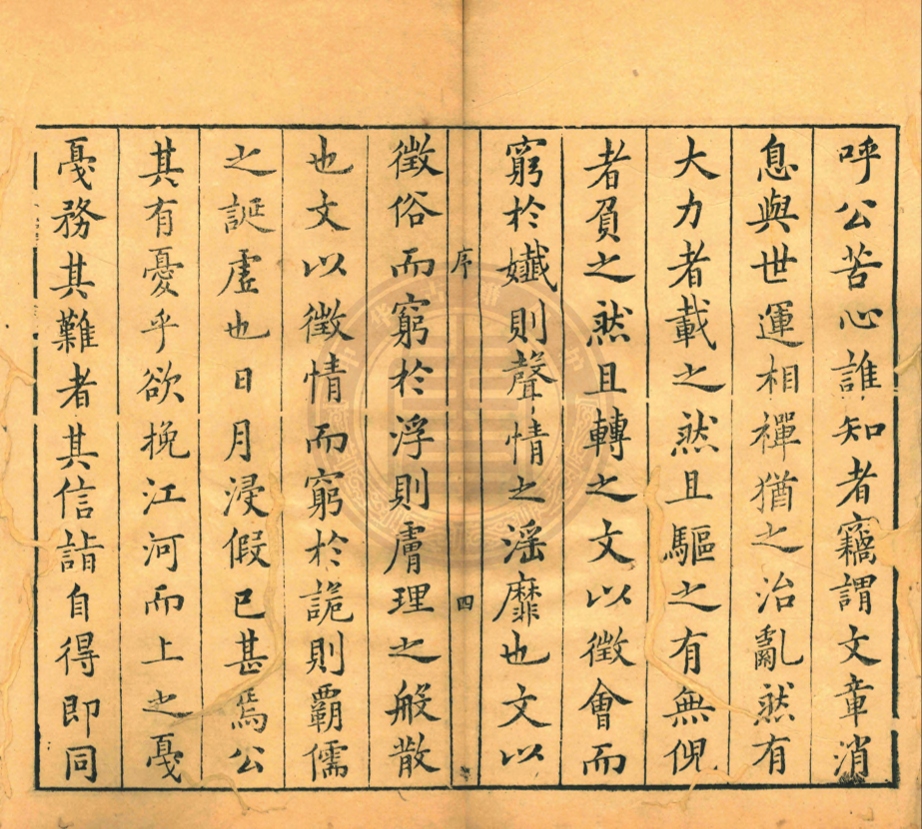 呼公苦心誰知者竊謂文章消
息與世運相禪猶之治亂然有
大力者載之然且驅之有無倪
者負之然且轉之文以徵會而
窮於孅則聲情之滛靡也文以
序
四
徵俗而窮於浮則膚理之般散
也文以徵情而窮於詭則覇儒
之誕虗也日月浸假已甚焉公
其有憂乎欲挽江河而上之戞
戞務其難者其信詣自得即同